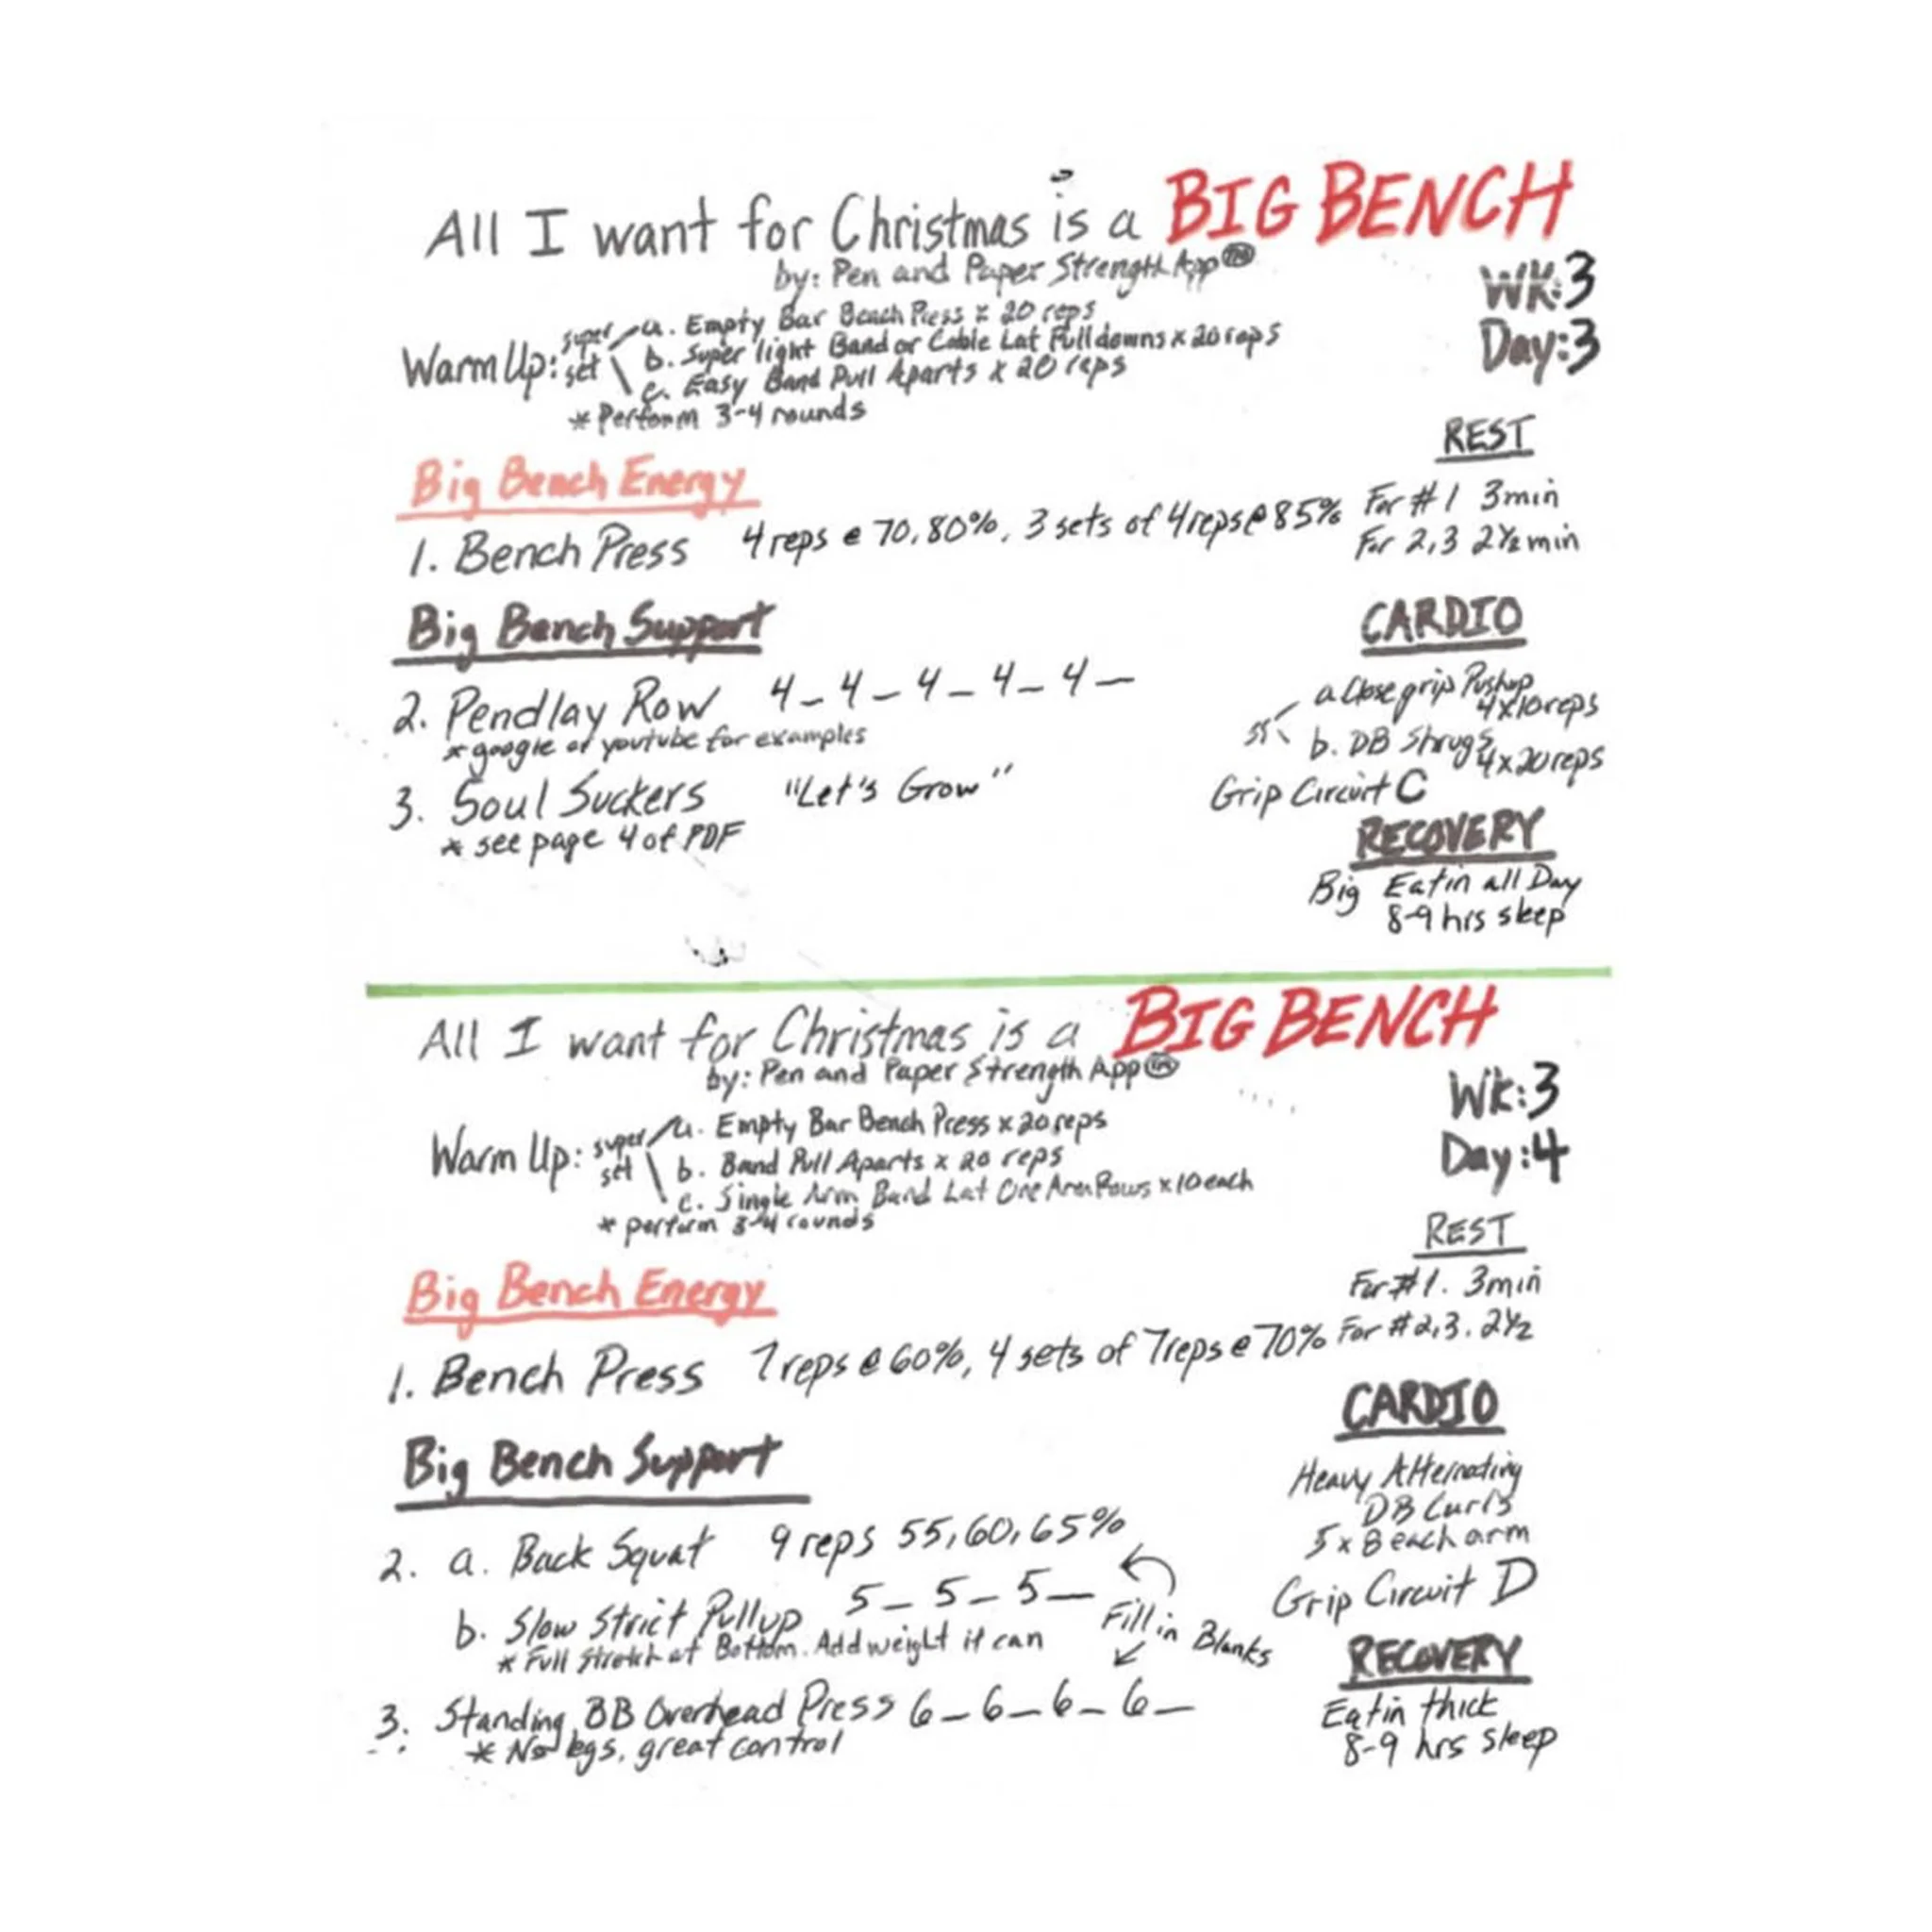 All I want for Christmas is a BIG BENCH
by: Pen and Paper Strength App TM
Wk:3
Day:3
Warm Up: super set
a. Empty Bar Bench Press x 20 reps
b. Super light Band or Cable Lat Pulldowns x 20 reps
c. Easy Band Pull Aparts x 20 reps
* Perform 3-4 rounds
REST
For #1 3min
For 2,3 2½ min
Big Bench Energy
1. Bench Press 4 reps @ 70,80%, 3 sets of 4 reps @ 85%
Big Bench Support
2. Pendlay Row 4_ 4_ 4_ 4_ 4_
* google or youtube for examples
3. Soul Suckers "Let's Grow"
* see page 4 of PDF
CARDIO
ss
a. Close grip Pushup
4x10reps
b. DB Shrugs
4x20reps
Grip Circuit C
RECOVERY
Big Eatin all Day
8-9 hrs sleep
All I want for Christmas is a BIG BENCH
by: Pen and Paper Strength App TM
Wk:3
Day:4
Warm Up: super set
a. Empty Bar Bench Press x 20 reps
b. Band Pull Aparts x 20 reps
c. Single Arm Band Lat One Arm Rows x 10 each
* perform 3-4 rounds
REST
For #1. 3min
For #2,3. 2½
Big Bench Energy
1. Bench Press 7 reps @ 60%, 4 sets of 7 reps @ 70%
Big Bench Support
2. a. Back Squat 9 reps 55,60,65%
b. Slow Strict Pullup 5_ 5_ 5_
* Full Stretch at Bottom. Add weight if can
Fill in Blanks
3. Standing BB Overhead Press 6_ 6_ 6_ 6_
* No legs, great control
CARDIO
Heavy Alternating
DB Curls
5 x 8 each arm
Grip Circuit D
RECOVERY
Eatin thick
8-9 hrs sleep